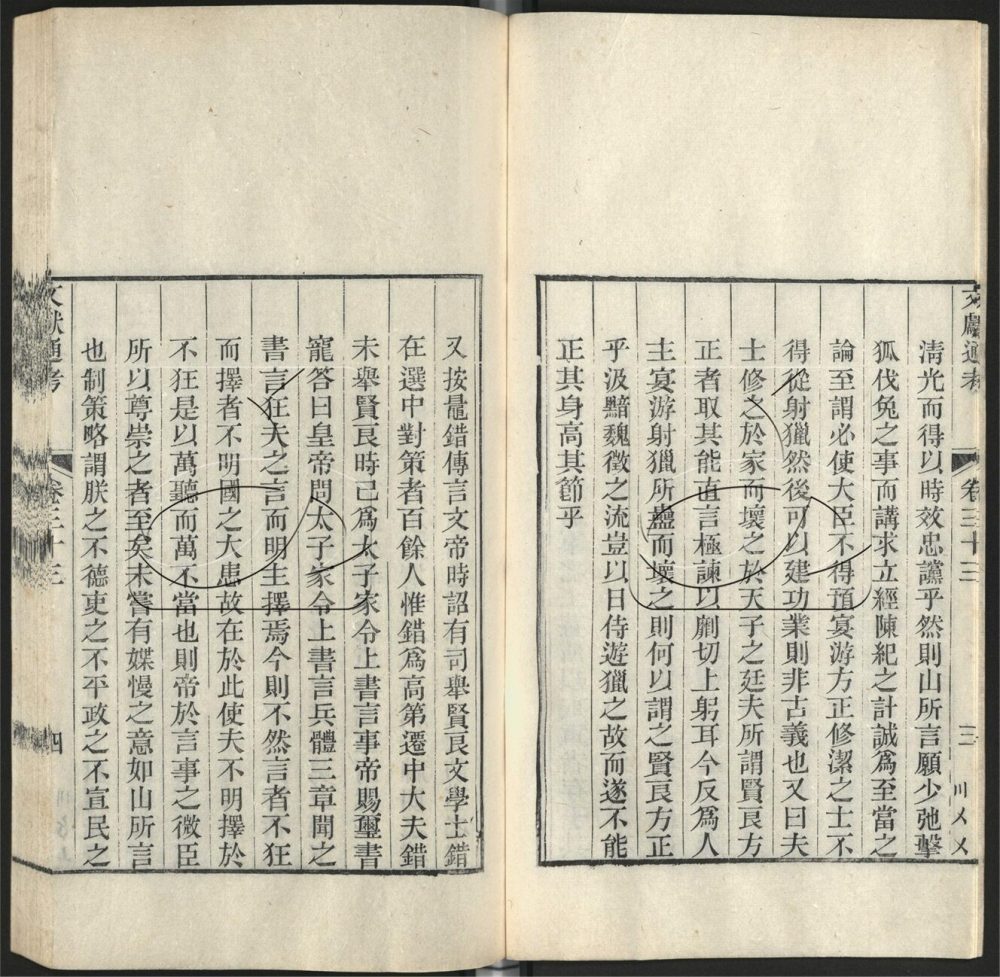 文獻通考 卷三十三 三 川〤〤
清光而得以時效忠讜乎然則山所言願少弛擊
狐伐兔之事而講求立經陳紀之計誠爲至當之
論至謂必使大臣不得預宴游方正修潔之士不
得從射獵然後可以建功業則非古義也又曰夫
士修之於家而壞之於天子之廷夫所謂賢良方
正者取其能直言極諫以劘切上躬耳今反爲人
主宴游射獵所蠱而壞之則何以謂之賢良方正
乎汲黯魏徵之流豈以日侍遊獵之故而遂不能
正其身高其節乎
又按鼂錯傳言文帝時詔有司舉賢良文學士錯
在選中對策者百餘人惟錯爲高第遷中大夫錯
未舉賢良時已爲太子家令上書言事帝賜璽書
寵答曰皇帝問太子家令上書言兵體三章聞之
書言狂夫之言而明主擇焉今則不然言者不狂
而擇者不明國之大患故在於此使夫不明擇於
不狂是以萬聽而萬不當也則帝於言事之微臣
所以尊崇之者至矣未嘗有媟慢之意如山所言
也制策略謂朕之不德吏之不平政之不宣民之
文獻通考 卷三十三 四